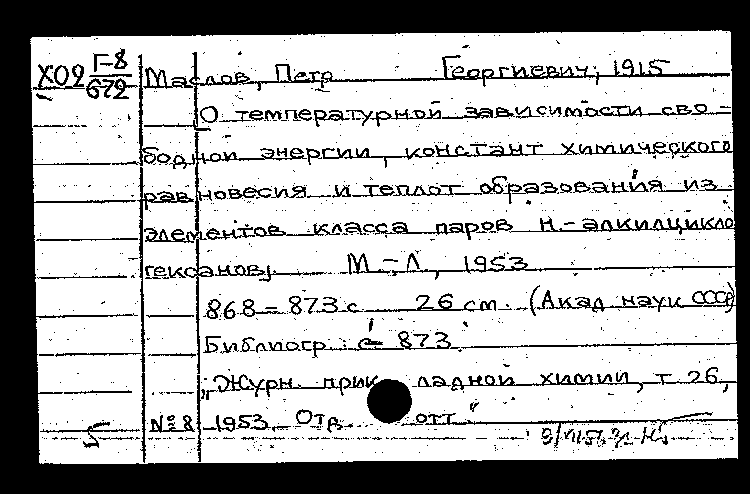 Х02 Г-8/672 Маслов, Петр Георгиевич, 1915
О температурной зависимости сво-
бодной энергии, констант химического
равновесия и теплот образования из
элементов класса паров н.-алкилцикло
гексанов. М.-Л, 1953
868-873 с 26 см. (Акад наук СССР)
Библиогр: с 873
"Журн. прикладной химии, т 26,
№8 1953. Отд. отт"